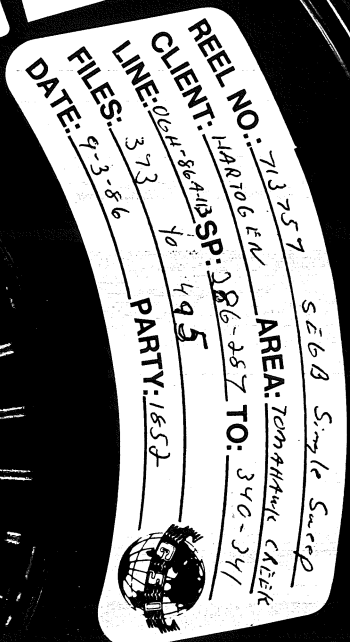 REEL NO.: 713757 SEGB Single Sweep
CLIENT: HARTOGEN AREA: TOMAHAWK CREEK
LINE: OGH-86A-113 SP: 286-287 TO: 340-341
FILES: 373 to 495
DATE: 9-3-86 PARTY: 1852
GSI